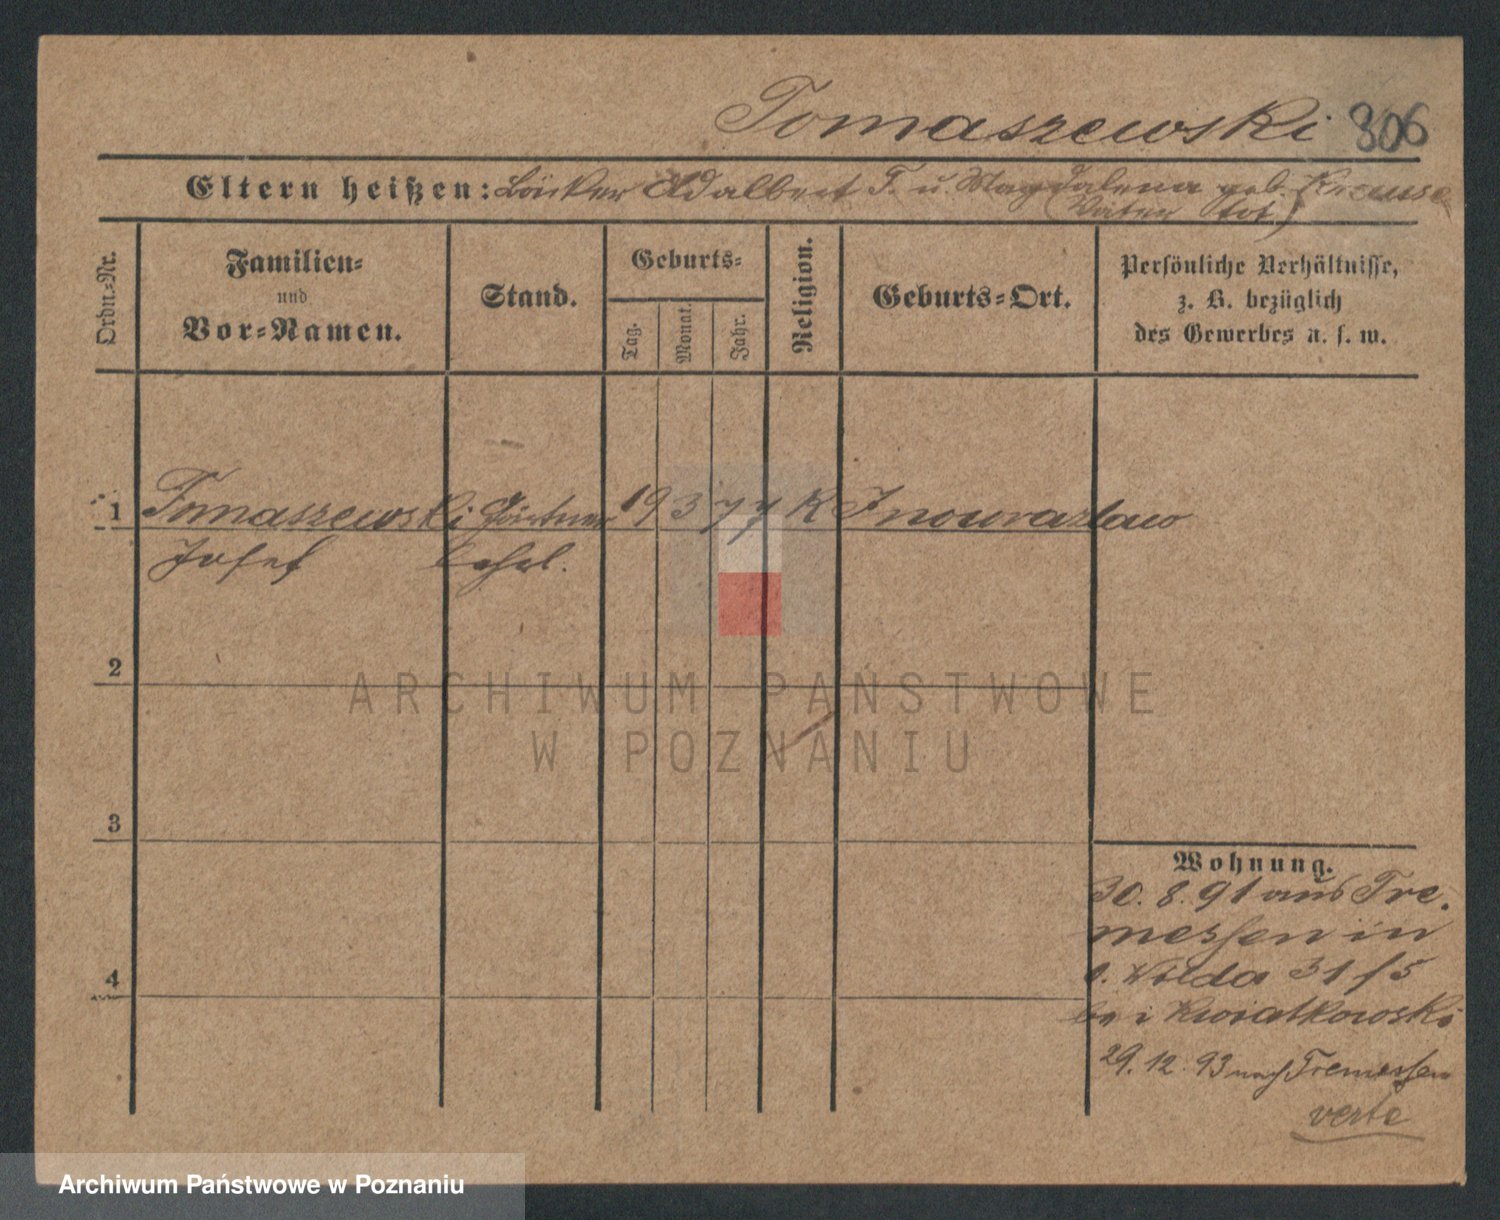 Tomaszewski 306
Eltern heißen: Bäcker Adalbert T. u. Magdalena geb. Krause
(Vater tot)
Ordn.-Nr.
Familien-
und
Vor-Namen.
Stand.
Geburts-
Tag.
Monat.
Jahr.
Religion.
Geburts-Ort.
Persönliche Verhältnisse,
z. B. bezüglich
des Gewerbes u. s. w.
1 Tomaszewski Gärtner 19 3 77 K Inowrazlaw
Josef lehrl.
2
ARCHIWUM PAŃSTWOWE
W POZNANIU
3
Wohnung.
30. 8. 91 aus Tre-
messen in
O. Wilda 31/5
4
bei Kwiatkowski
29. 12. 93 nach Tremessen
verte
Archiwum Państwowe w Poznaniu